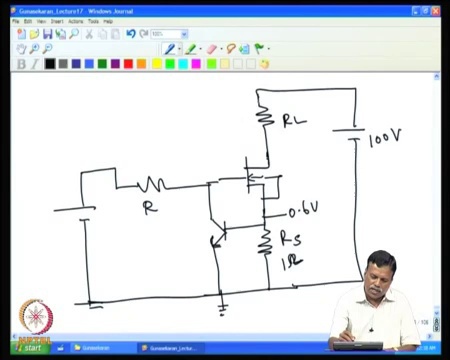 Gunasekaran_Lecture17 - Windows Journal
File Edit View Insert Actions Tools Help
100%
B I
RL
100V
R
0.6V
RS
1Ω
NPTEL
start
Gunasekaran
Gunasekaran_Lectu...